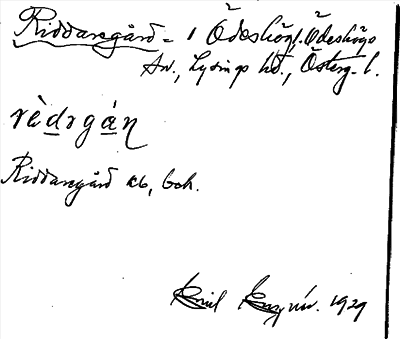 Riddaregård = i Ödeshög, Ödeshögs
sn., Lysings hd., Österg. l.
rèdrgán
Riddaregård kb, boh.
Emil 1929